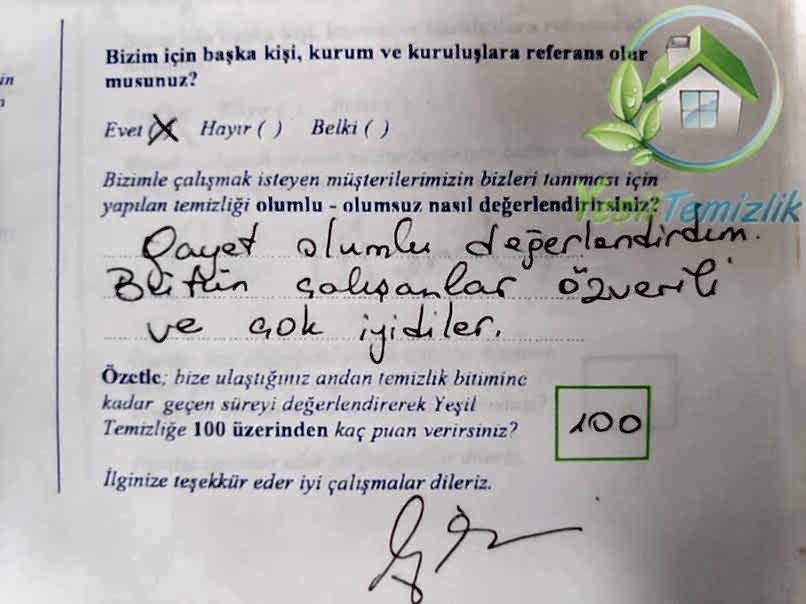 Bizim için başka kişi, kurum ve kuruluşlara referans olur
musunuz?
Evet (X) Hayır ( ) Belki ( )
Bizimle çalışmak isteyen müşterilerimizin bizleri tanıması için
yapılan temizliği olumlu - olumsuz nasıl değerlendirirsiniz?
Yeşil Temizlik
Gayet olumlu değerlendirdim.
Bütün çalışanlar özverili
ve çok iyidiler.
Özetle; bize ulaştığınız andan temizlik bitimine
kadar geçen süreyi değerlendirerek Yeşil
Temizliğe 100 üzerinden kaç puan verirsiniz?
100
İlginize teşekkür eder iyi çalışmalar dileriz.